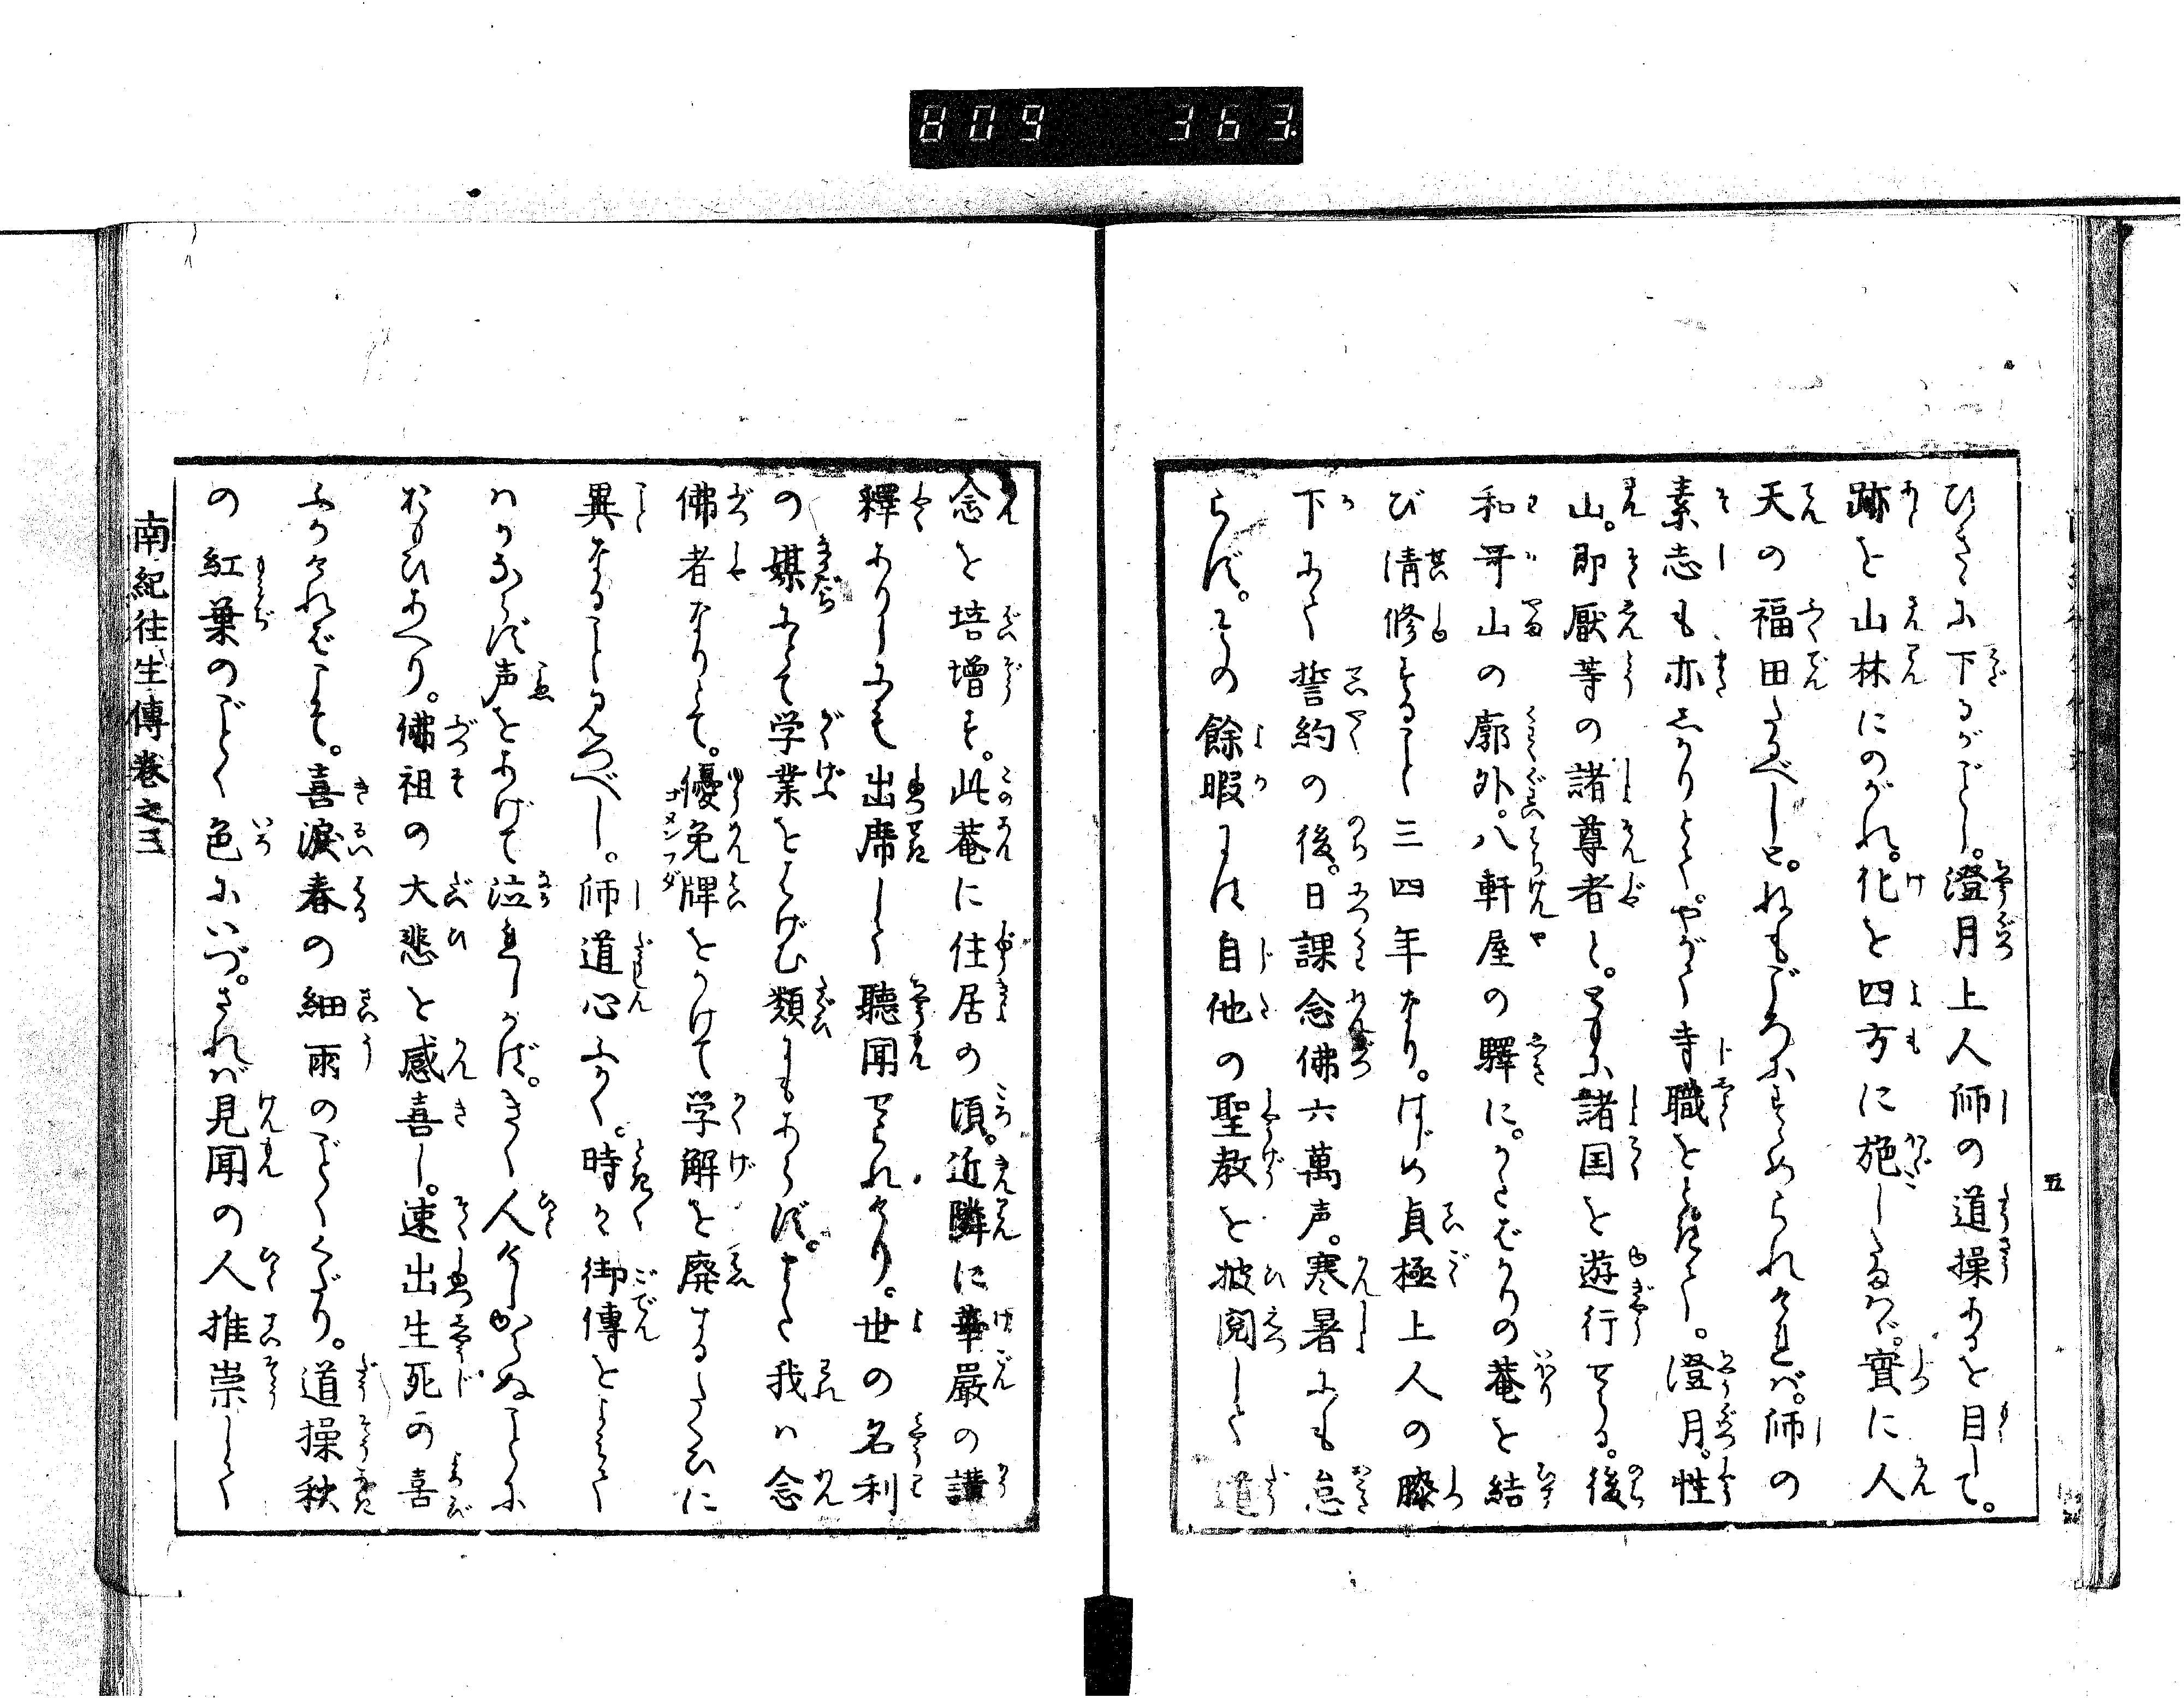 809 363.
ひきに下るがごとし。澄月上人師の道操あるを目して。
跡を山林にのがれ。化を四方に施したまはゞ。實に人
天の福田たるべしと。ねもごろにすゝめられければ。師の
素志も亦しかりとて。やがて寺職を澄月。性
山。即厭等の諸尊者と。ともに諸国を遊行せらる。後
和哥山の廓外。八軒屋の驛に。かたばかりの菴を結
び清修すること三四年なり。はじめ貞極上人の膝
下にて誓約の後。日課念佛六萬声。寒暑にも怠
らず。その餘暇には自他の聖教を披閲して道
五
念を培增す。此菴に住居の頃。近隣に華嚴の講
釋ありしにも出席して聽聞せられけり。世の名利
の媒にとて学業をはげむ類にもあらず。また我ハ念
佛者なりとて。優免牌をかけて学解を廃するたぐひに
ゴメンフダ
異なることしんぬべし。師道心ふかく。時々御傳をよみて
ハかならず声をあげて泣れしかば。きく人けしからぬことに
おもひあへり。佛祖の大悲を感喜し。速出生死の喜
ふかければこそ。喜淚春の細雨のごとくくだり。道操秋
の紅葉のごとく色にいづ。されば見聞の人推崇して
南紀往生傳卷之三